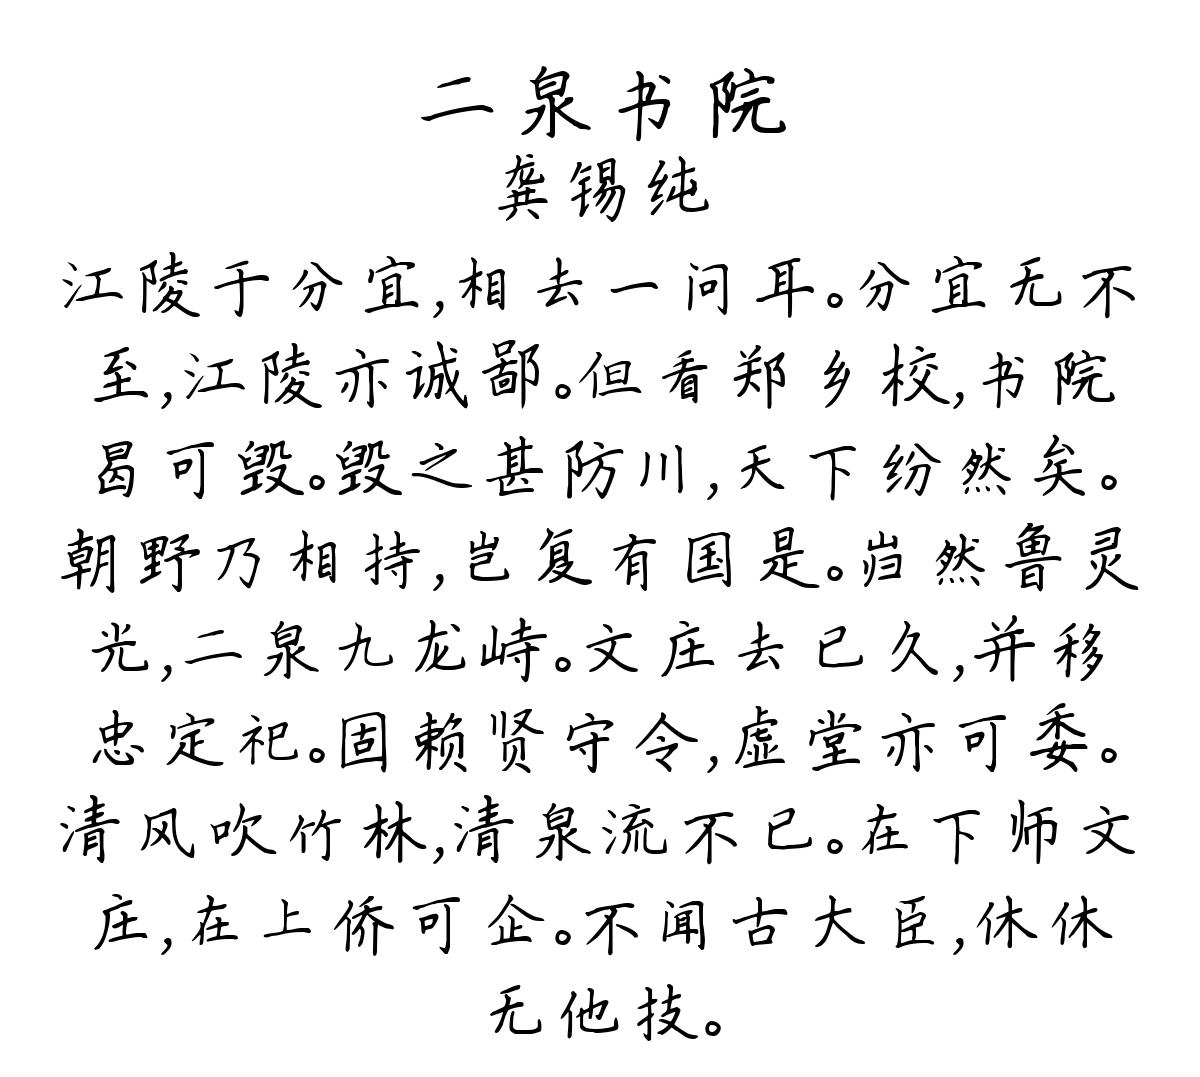 二泉书院
龚锡纯
江陵于分宜,相去一问耳。分宜无不
至,江陵亦诚鄙。但看郑乡校,书院
曷可毁。毁之甚防川,天下纷然矣。
朝野乃相持,岂复有国是。岿然鲁灵
光,二泉九龙峙。文庄去已久,并移
忠定祀。固赖贤守令,虚堂亦可委。
清风吹竹林,清泉流不已。在下师文
庄,在上侨可企。不闻古大臣,休休
无他技。